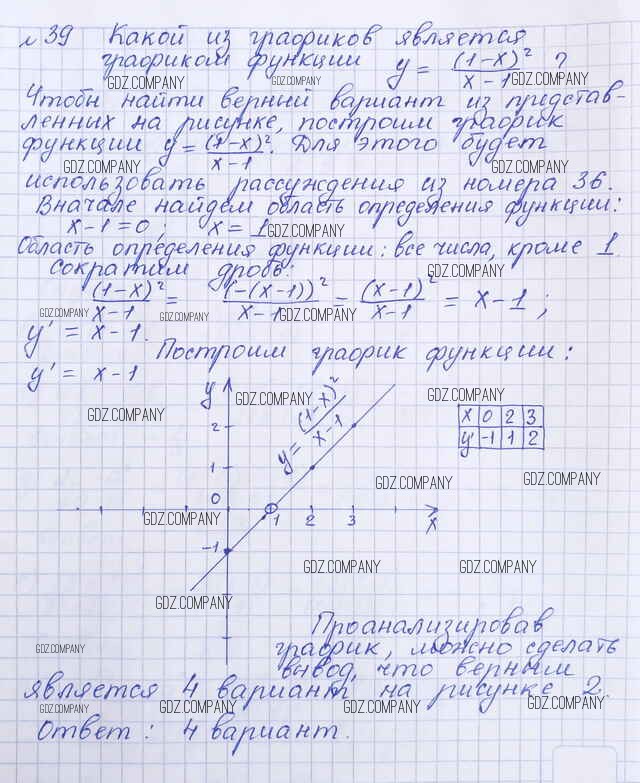 №39 Какой из графиков является
графиком функции y = (1-x)²/(x-1) ?
GDZ.COMPANY GDZ.COMPANY GDZ.COMPANY
Чтобы найти верный вариант из представ-
ленных на рисунке, построим график
функции y = (1-x)²/(x-1). Для этого будем
GDZ.COMPANY GDZ.COMPANY
использовать рассуждения из номера 36.
Вначале найдем область определения функции:
x-1=0; x=1 GDZ.COMPANY
Область определения функции: все числа, кроме 1.
Сократим дробь: GDZ.COMPANY
(1-x)²/(x-1) = (-(x-1))²/(x-1) = (x-1)²/(x-1) = x-1;
GDZ.COMPANY GDZ.COMPANY GDZ.COMPANY
y' = x-1.
Построим график функции:
y' = x-1
y GDZ.COMPANY GDZ.COMPANY
GDZ.COMPANY
y = (1-x)²/(x-1)
x 0 2 3
y' -1 1 2
2
1
GDZ.COMPANY GDZ.COMPANY
0
GDZ.COMPANY 1 2 3 x
-1
GDZ.COMPANY GDZ.COMPANY
GDZ.COMPANY
Проанализировав
GDZ.COMPANY график, можно сделать
вывод, что верным
является 4 вариант на рисунке 2.
GDZ.COMPANY GDZ.COMPANY GDZ.COMPANY GDZ.COMPANY
Ответ: 4 вариант.